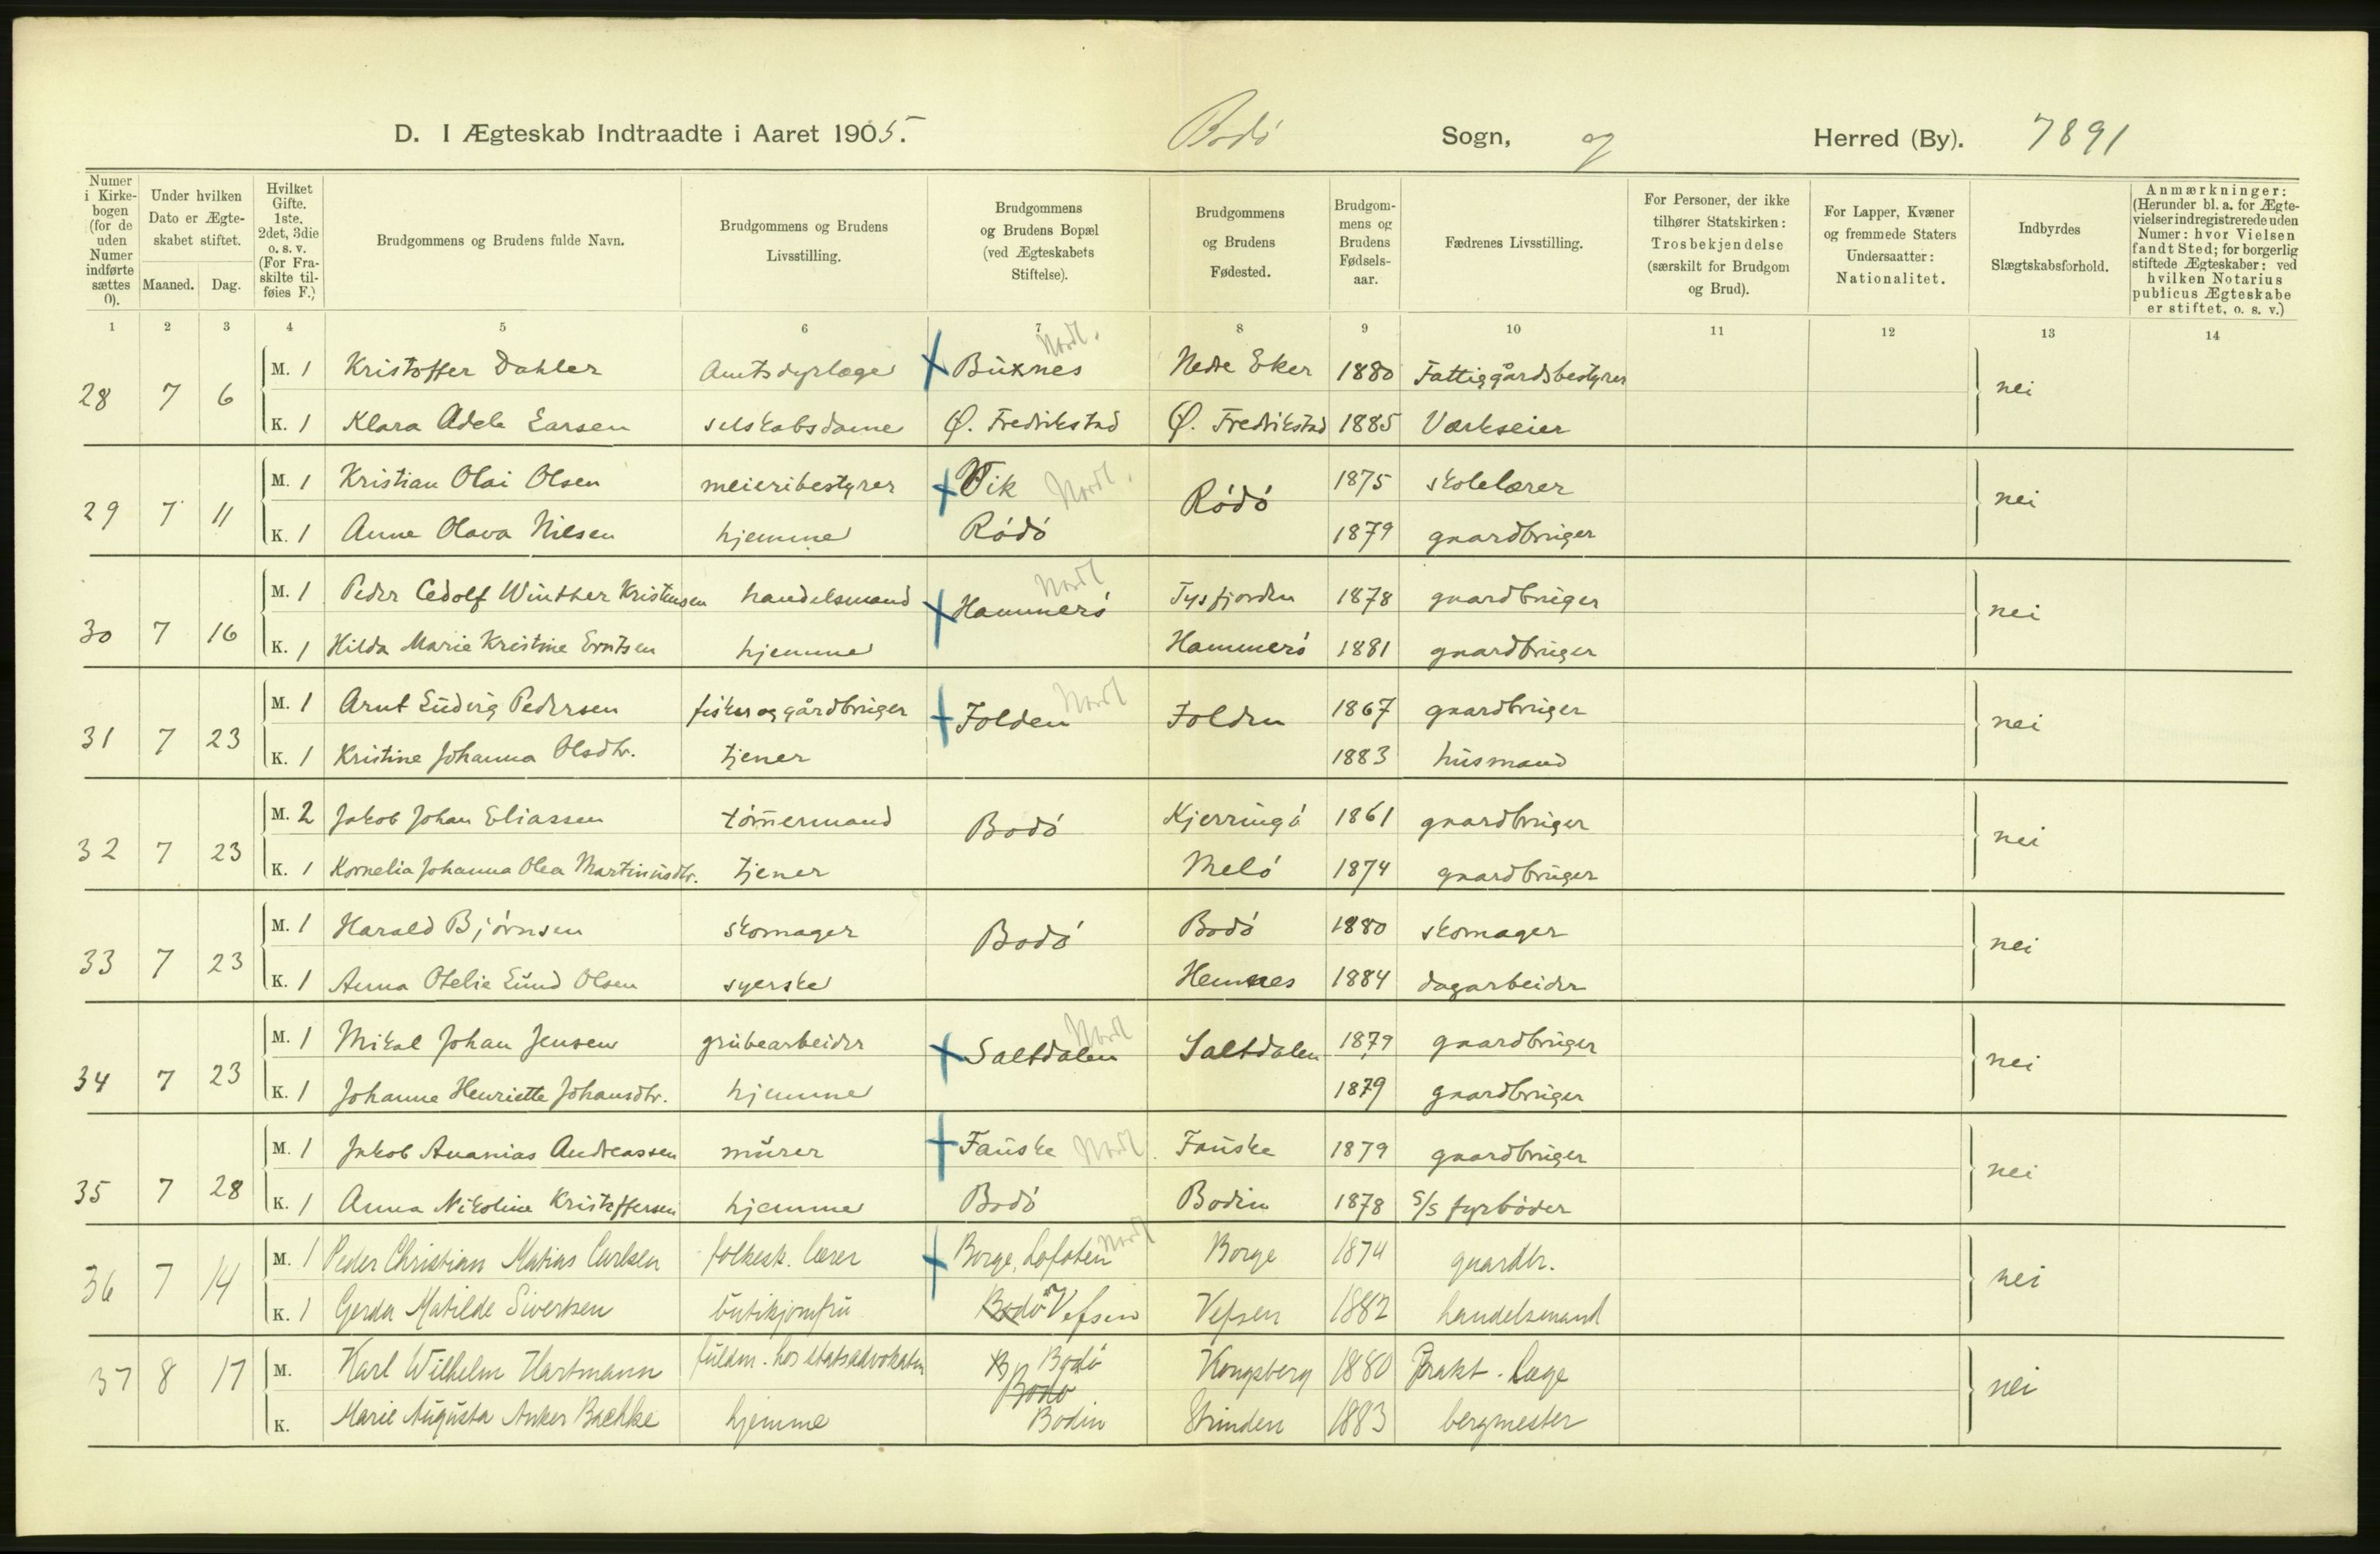 D. I Ægteskab Indtraadte i Aaret 1905. Bodø Sogn, og Herred (By). 7891
Numer i Kirkebogen (for de uden Numer indførte sættes 0).
Under hvilken Dato er Ægteskabet stiftet.
Maaned. Dag.
Hvilket Gifte. 1ste, 2det, 3die o. s. v. (For Fraskilte tilføies F.)
Brudgommens og Brudens fulde Navn.
Brudgommens og Brudens Livsstilling.
Brudgommens og Brudens Bopæl (ved Ægteskabets Stiftelse).
Brudgommens og Brudens Fødested.
Brudgommens og Brudens Fødselsaar.
Fædrenes Livsstilling.
For Personer, der ikke tilhører Statskirken: Trosbekjendelse (særskilt for Brudgom og Brud).
For Lapper, Kvæner og fremmede Staters Undersaatter: Nationalitet.
Indbyrdes Slægtskabsforhold.
Anmærkninger: (Herunder bl. a. for Ægtevielser indregistrerede uden Numer: hvor Vielsen fandt Sted; for borgerlig stiftede Ægteskaber: ved hvilken Notarius publicus Ægteskabe er stiftet, o. s. v.)
1 2 3 4 5 6 7 8 9 10 11 12 13 14
Nordl.
M. 1 Kristoffer Dahler Amtsdyrlæge Buxnes Nedre Eker 1880 Fattiggårdsbestyrer
28 7 6 nei
K. 1 Klara Adele Larsen selskabsdame Ø. Fredrikstad Ø. Fredrikstad 1885 Værkseier
M. 1 Kristian Olai Olsen meieribestyrer Vik Nordl. Rødø 1875 skolelærer
29 7 11 nei
K. 1 Anne Olava Nilsen hjemme Rødø 1879 gaardbruger
Nordl
M. 1 Peder Cedolf Winther Kristensen handelsmand Hammerø Tysfjorden 1878 gaardbruger
30 7 16 nei
K. 1 Hilda Marie Kristine Erntsen hjemme Hammerø 1881 gaardbruger
M. 1 Arnt Ludvig Pedersen fisker og gårdbruger Folden Nordl Folden 1867 gaardbruger
31 7 23 nei
K. 1 Kristine Johanna Olsdtr. tjener 1883 husmand
M. 2 Jakob Johan Eliassen tømmermand Bodø Kjerringø 1861 gaardbruger
32 7 23 nei
K. 1 Kornelia Johanna Olea Martinusdtr. tjener Melø 1874 gaardbruger
M. 1 Harald Bjørnsen skomager Bodø Bodø 1880 skomager
33 7 23 nei
K. 1 Anna Otelie Lund Olsen syerske Hemnes 1884 dagarbeider
M. 1 Mikal Johan Jensen grubearbeider Saltdalen Nordl Saltdalen 1879 gaardbruger
34 7 23 nei
K. 1 Johanne Henriette Johansdtr. hjemme 1879 gaardbruger
M. 1 Jakob Ananias Andreassen murer Fauske Nordl. Fauske 1879 gaardbruger
35 7 28 nei
K. 1 Anna Nikoline Kristoffersen hjemme Bodø Bodin 1878 S/S fyrbøder
M. 1 Peder Christian Matias Carlsen folkesk. lærer Borge, Lofoten Nordl Borge 1874 gaardbr.
36 7 14 nei
K. 1 Gerda Matilde Sivertsen butikjomfru Bodø Vefsen Vefsen 1882 handelsmand
M. Karl Wilhelm Hartmann fuldm. hos statsadvokaten B Bodø Kongsberg 1880 Prakt. læge
37 8 17 Bodø nei
K. Marie Augusta Anker Bachke hjemme Bodin Strinden 1883 bergmester